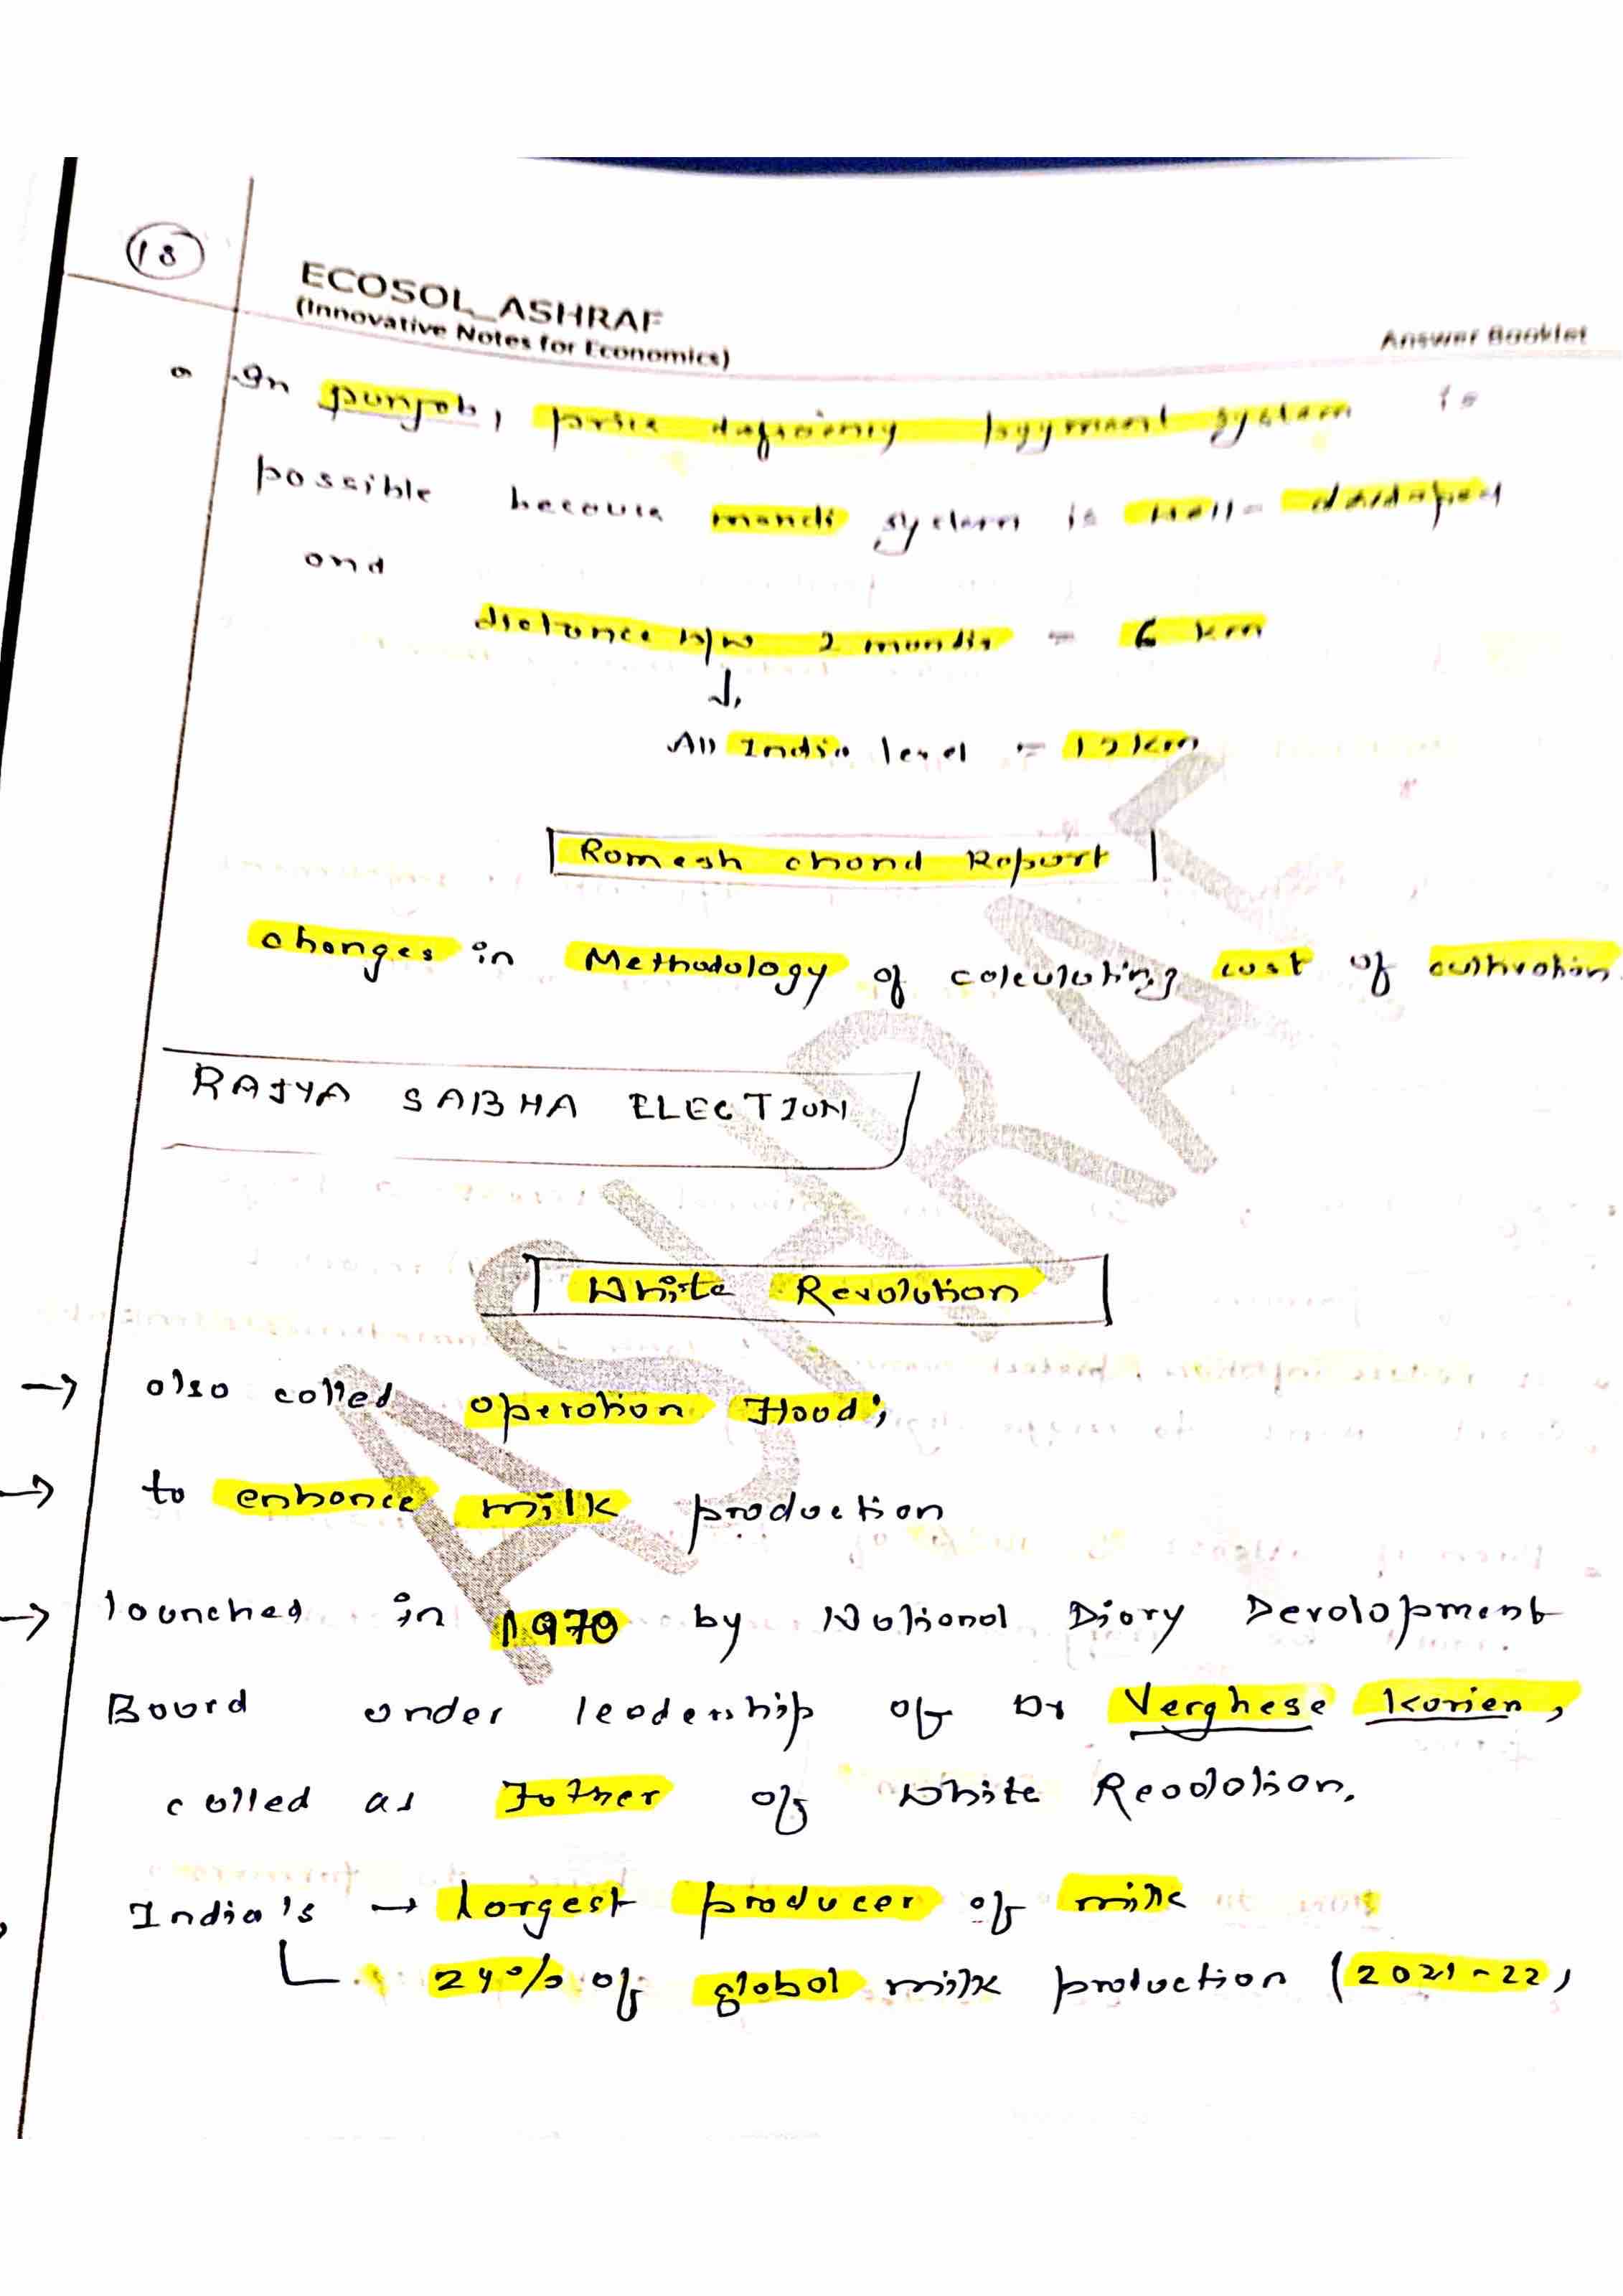 18
ECOSOL_ASHRAF
(Innovative Notes for Economics)
Answer Booklet
In punjab, price deficiency payment system is
possible because mandi system is well-developed
and
distance b/w 2 mandis = 6 km
↓
All India level = 12 km
Ramesh chand Report
changes in Methodology of calculating cost of cultivation.
RAJYA SABHA ELECTION
White Revolution
→ also called operation Flood;
→ to enhance milk production
→ launched in 1970 by National Diary Development
Board under leadership of Dr Verghese Kurien,
called as Father of White Revolution.
India's → largest producer of milk
24% of global milk production (2021-22)
ASHRAF